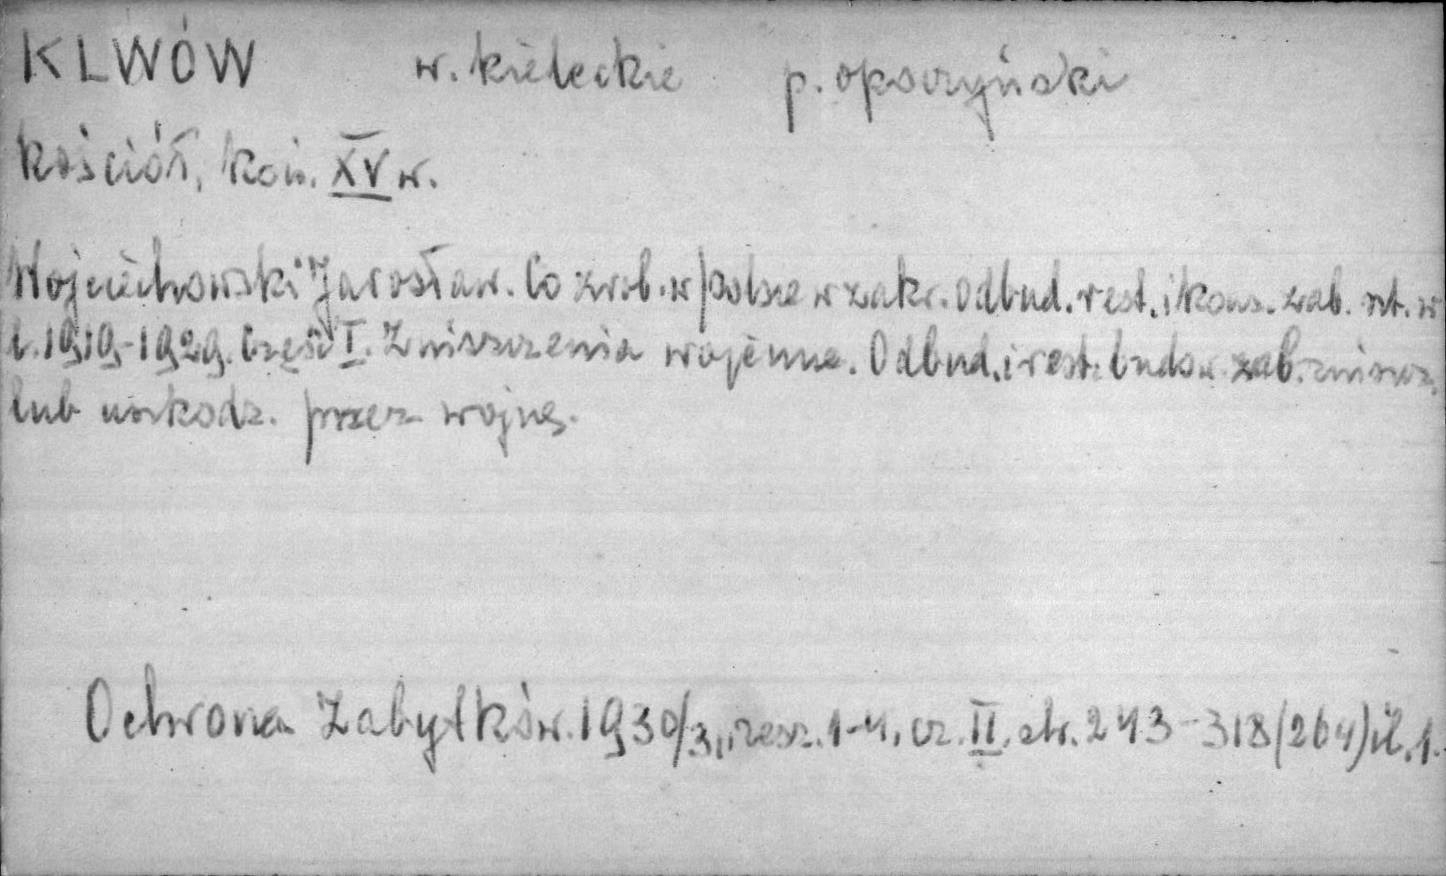 KLWÓW w. kieleckie p. opoczyński
Kościół, koń. XV w.
Wojciechowski Jarosław. Co zrob. w Polsce w zakr. odbud. rest. i kons. zab. szt. w
l. 1919-1929. Część I. Zniszczenia wojenne. Odbud. i rest. budow. zab. zniszcz.
lub uszkodz. przez wojnę.
Ochrona Zabytków. 1930/31, zesz. 1-4, cz. II, str. 243-318 (264) il. 1.